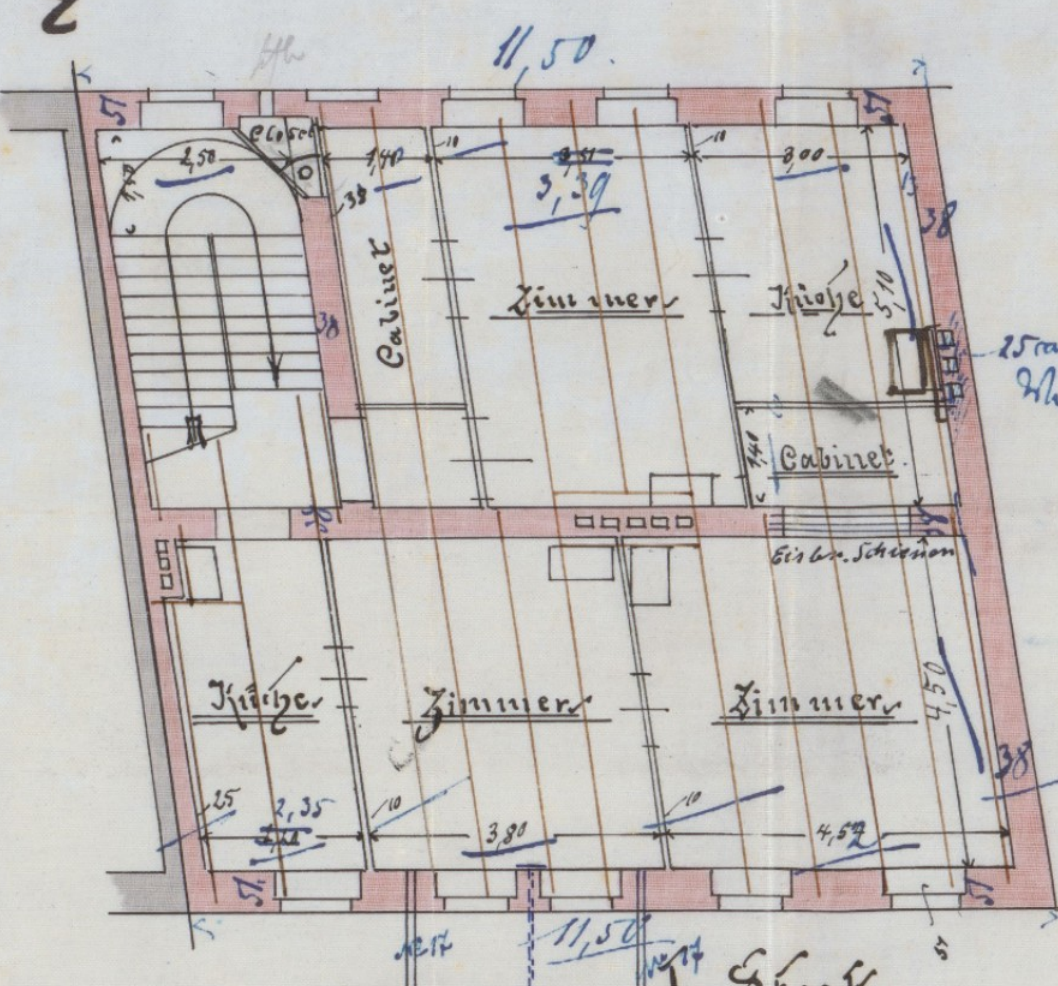 11,50.
51
Closet
51
2,50
1,40
10
3,51
10
3,00
1,50
3,39
38
38
38
Cabinet
Zimmer
Küche
5,10
25
1,40
Cabinet
38
Eisbr. Schienen
Küche
Zimmer
Zimmer
4,50
38
25
2,35
10
3,80
10
4,52
51
51
51
№ 17
11,50
№ 17